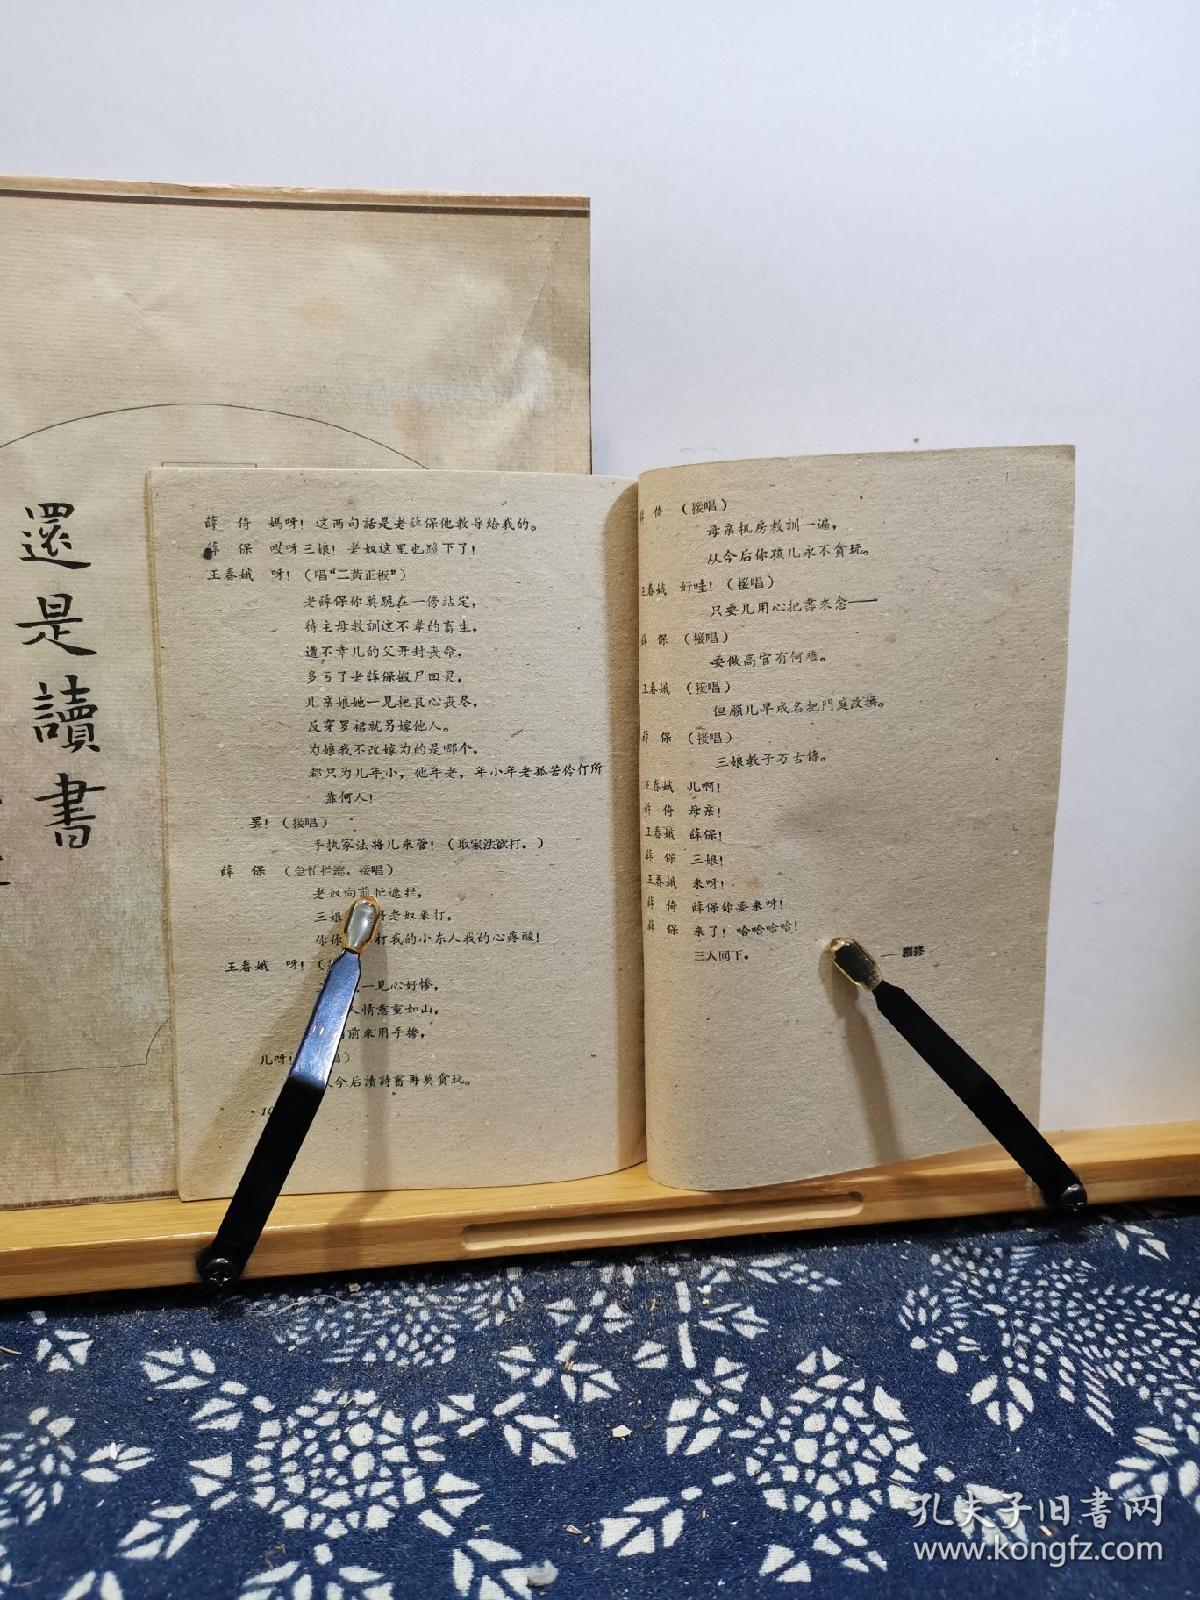 還是讀書
薛　倚　媽呀！这两句話是老薛保他教导給我的。
薛　保　哎呀三娘！老奴这里也跪下了！
王春娥　呀！（唱“二黃正板”）
老薛保你莫跪在一傍站定，
待主母教訓这不孝的畜生，
遭不幸儿的父开封丧命，
多亏了老薛保搬尸回灵，
儿亲娘她一見把良心丧尽，
反穿罗裙就另嫁他人。
为娘我不改嫁为的是哪个，
都只为儿年小，他年老，年小年老孤苦伶仃所
靠何人！
罢！（接唱）
手执家法将儿来管！（取家法欲打。）
薛　保　（急忙拦阻。接唱）
老奴向前忙遮拦，
三娘 老奴来打，
你 打我的小东人我的心疼酸！
王春娥　呀！（
一見心好惨，
人情意重如山，
前来用手搀，
儿呀！ 唱）
今后讀詩書再莫貪玩。
薛　倚　（接唱）
母亲机房教訓一遍，
从今后你孩儿永不貪玩。
王春娥　好哇！（接唱）
只要儿用心把書来念——
薛　保　（接唱）
要做高官有何难。
王春娥　（接唱）
但願儿早成名把門庭改換。
薛　保　（接唱）
三娘教子万古傳。
王春娥　儿啊！
薛　倚　母亲！
王春娥　薛保！
薛　保　三娘！
王春娥　来呀！
薛　倚　薛保你要来呀！
薛　保　来了！哈哈哈哈！
三人同下。
——劇終
孔夫子旧書网
www.kongfz.com